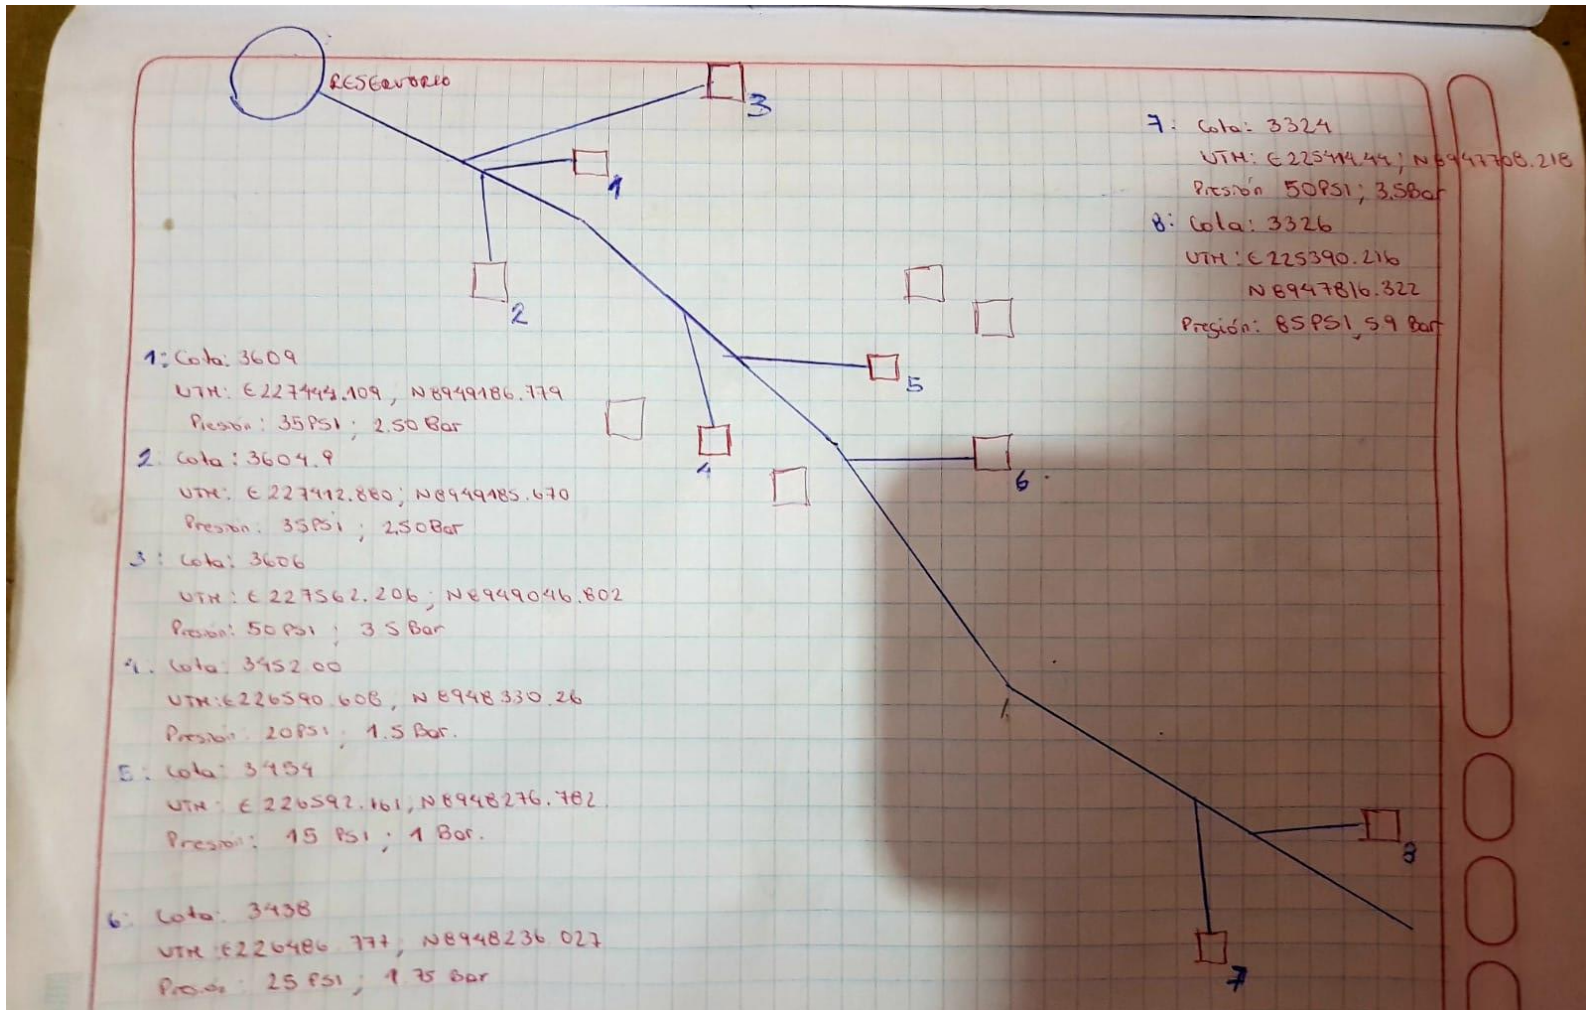 RESERVORIO
3
1
2
5
4
6
7
8
1: Cota: 3609
UTM: E227444.109, N8949186.779
Presión: 35PSI; 2.50 Bar
2. Cota: 3604.9
UTM: E227412.880; N8949185.670
Presión: 35PSi; 2,50Bar
3: Cota: 3606
UTM: E227562.206; N8949046.802
Presión: 50PSI; 3.5 Bar
4. Cota: 3452.00
UTM: E226590.608, N8948330.26
Presión: 20PSI; 1.5 Bar.
5: Cota: 3454
UTM: E226592.161, N8948276.782
Presión: 15 PSI; 1 Bar.
6: Cota: 3438
UTM: E226486.777; N8948236.027
Presión: 25 PSI; 1.75 Bar
7: Cota: 3324
UTM: N8947708.218
Presión 50PSI; 3.5Bar
8: Cota: 3326
UTM: E225390.216
N8947816.322
Presión: 85PSI, 5.9 Bar